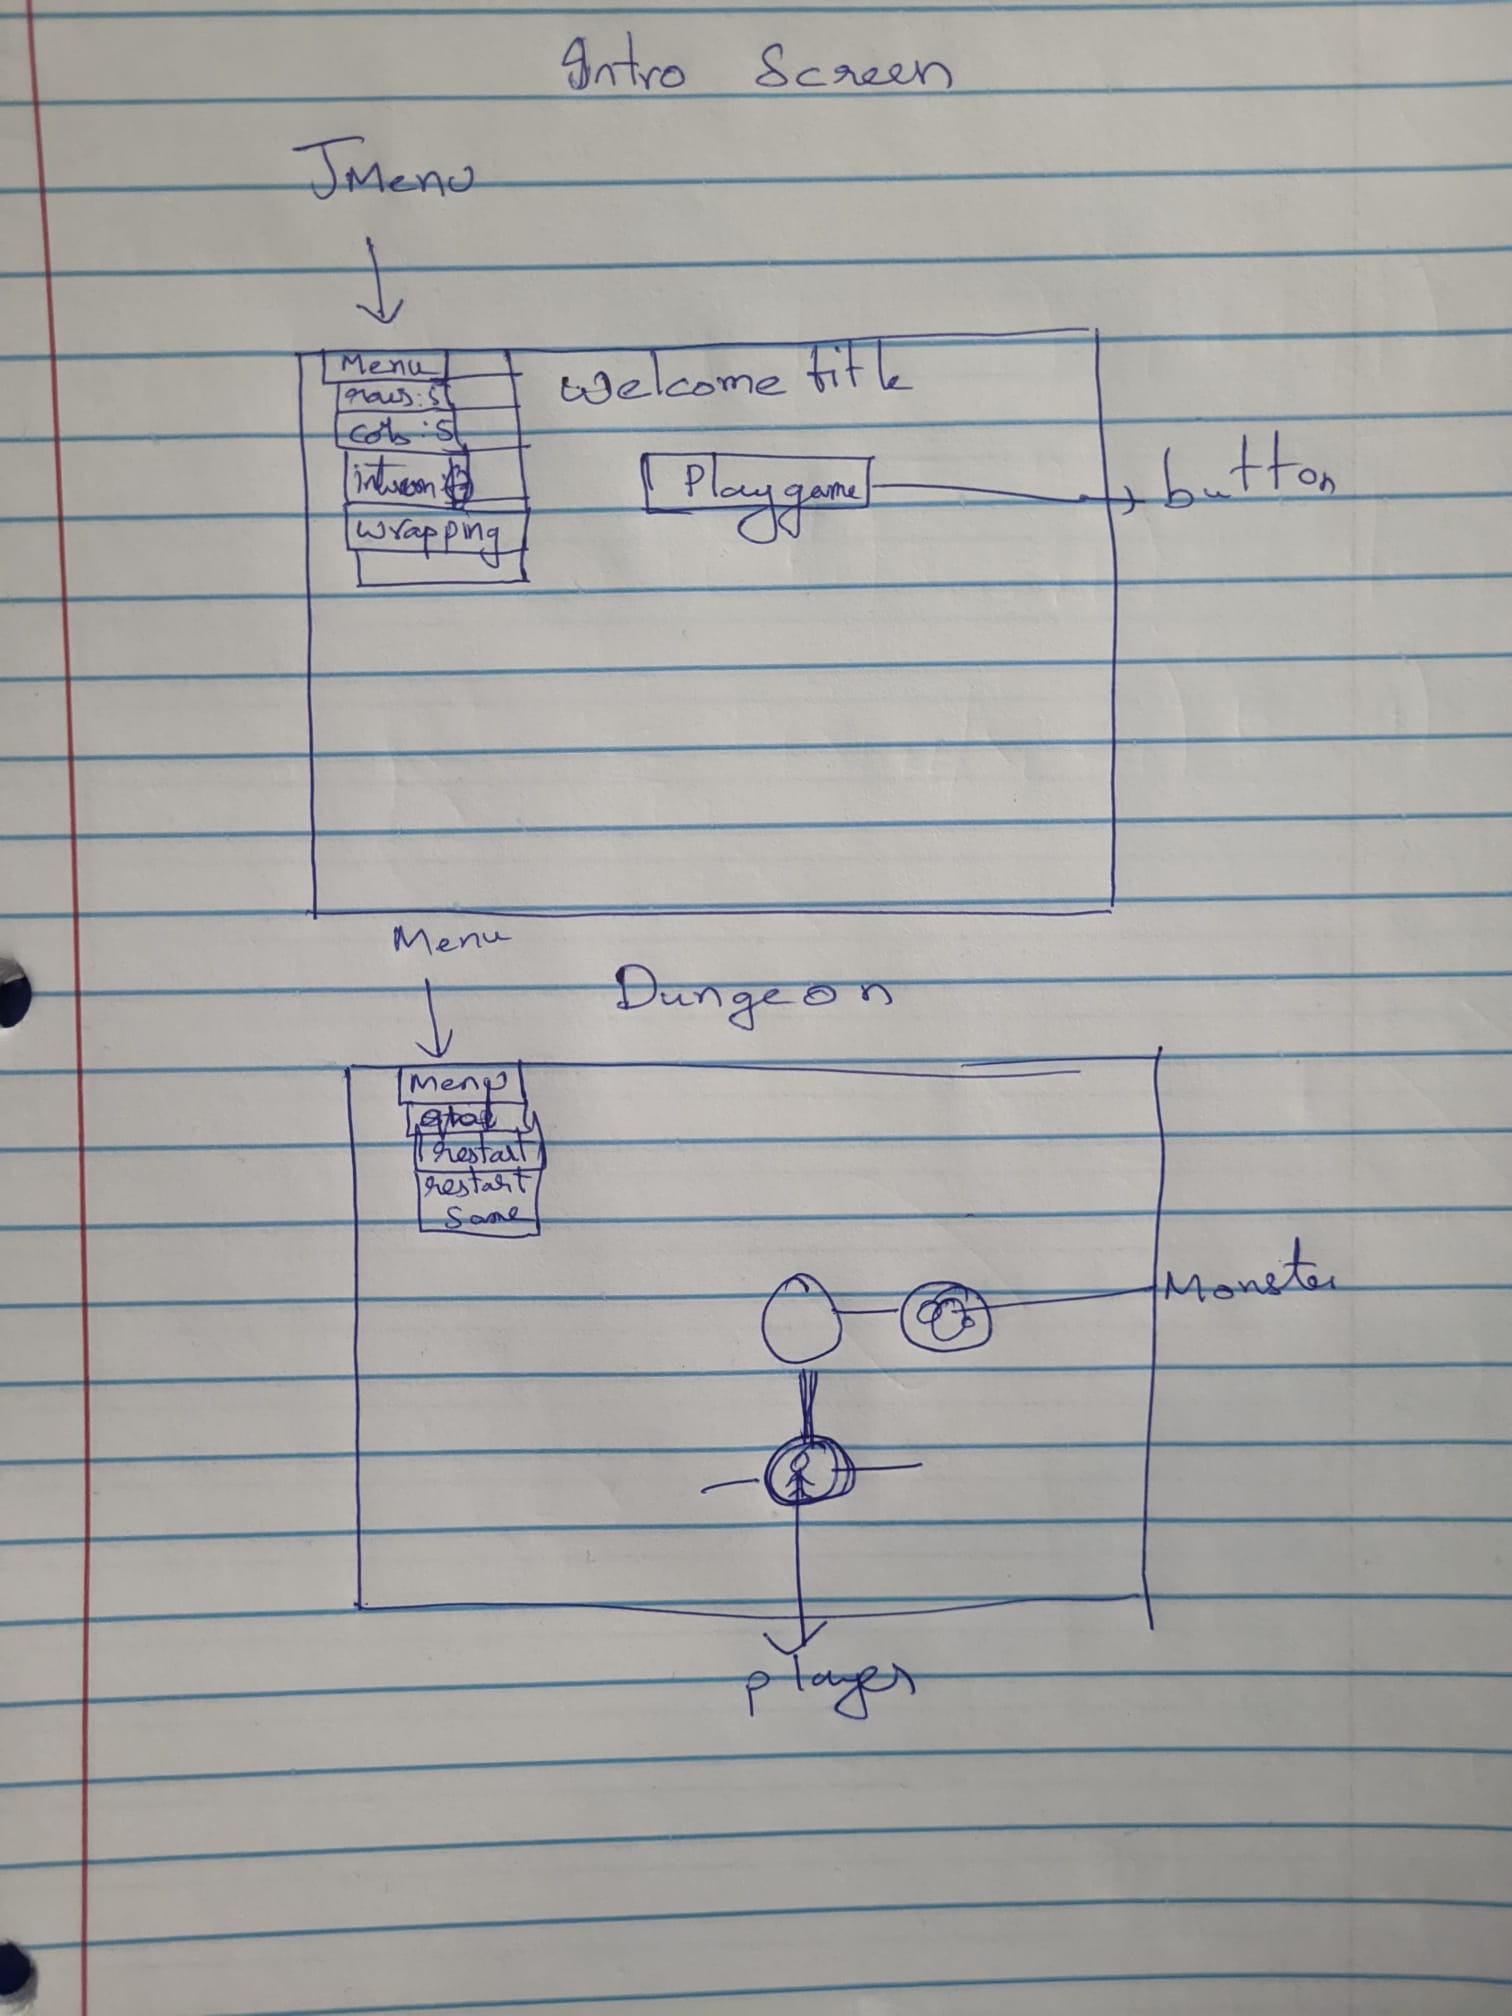 Intro Screen
JMenu
Menu
rows:5
cols:5
wrapping
Welcome title
Play game
button
Menu
Dungeon
Menu
restart
restart
same
Monster
player